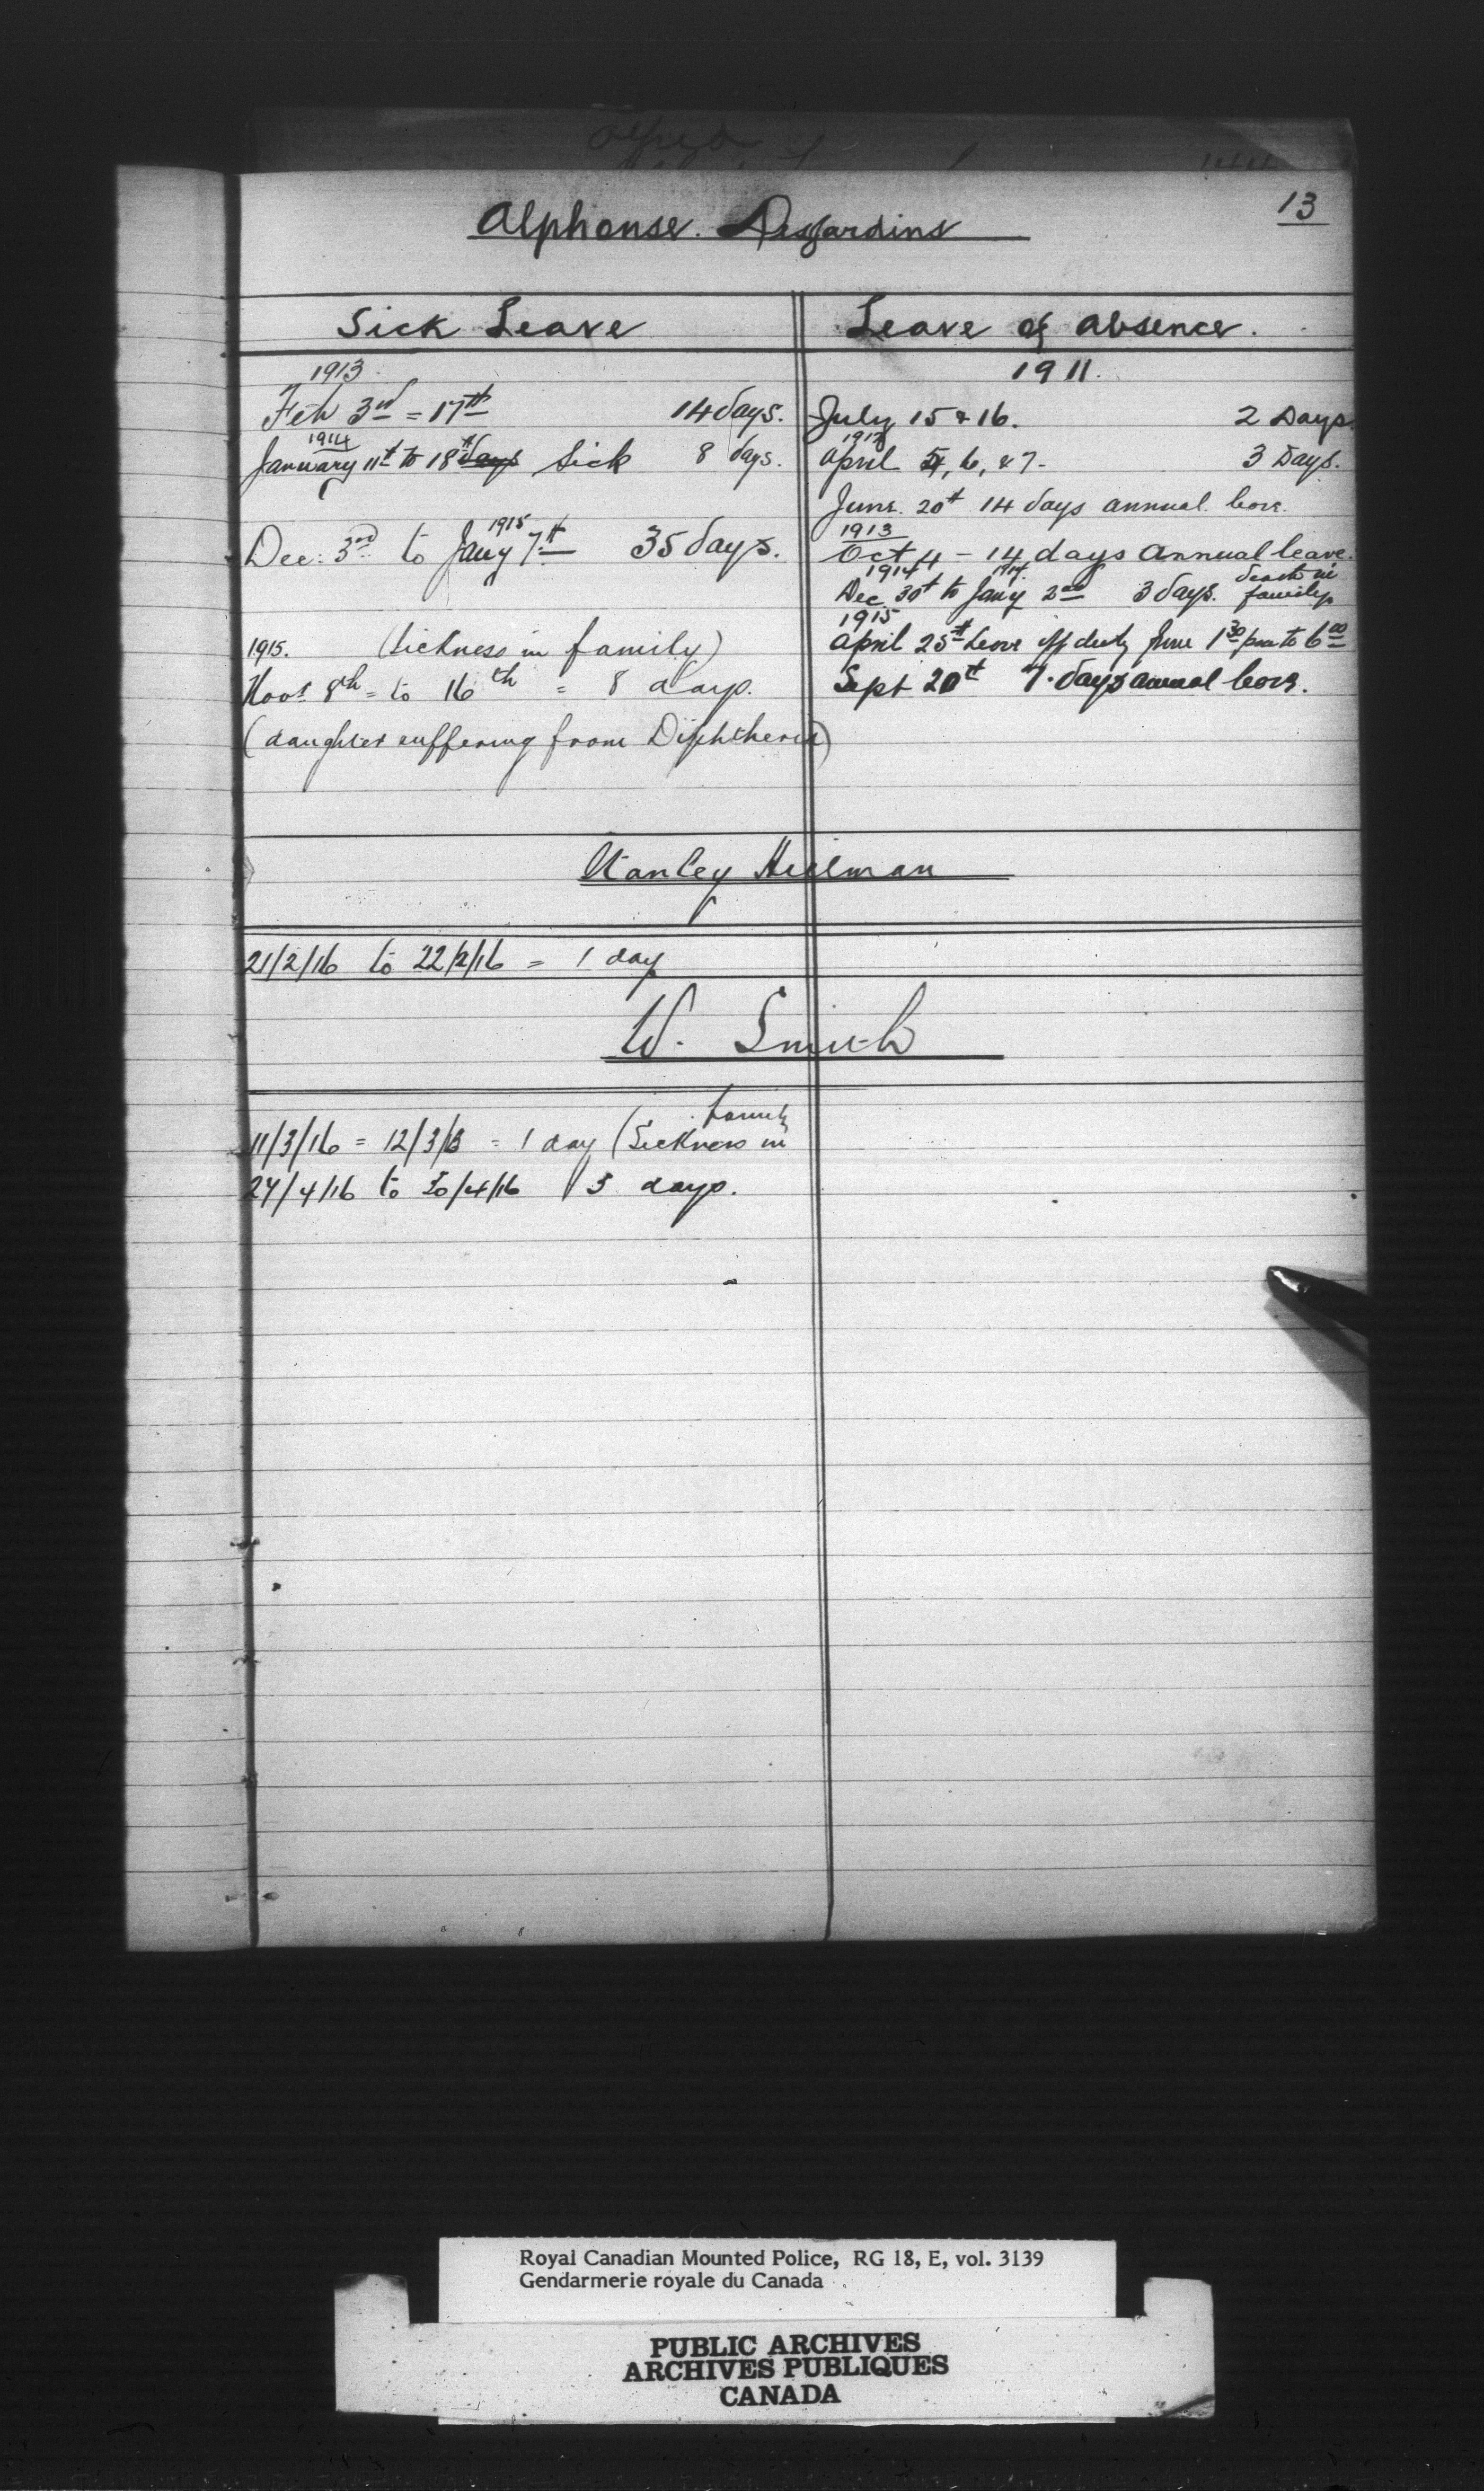 13
Alphonse. Desjardins
Sick Leave
1913
Feb 3rd = 17th 14 days.
1914
January 11th to 18th days Sick 8 days.
1915
Dec: 3rd to Jany 7th 35 days.
1915. (Sickness in family)
Novr 8th = to 16th = 8 days.
(daughter suffering from Diphtheria)
Leave of absence.
1911.
July 15 & 16. 2 Days.
April 5, 6, & 7- 3 Days.
June. 20th 14 days annual leave.
1913
Oct 4 - 14 days Annual leave.
1914 1914
Dec 30th to Jany 2nd 3 days. death in family
1915
April 25th Leave off duty from 1 30 pm to 6 00
Sept 20th 7 days annual leave.
Stanley Hillman
21/2/16 to 22/2/16 = 1 day
W. Smith
family
11/3/16 = 12/3/16 = 1 day (Sickness in
/4/16 to 30/4/16 days.
Royal Canadian Mounted Police, RG 18, E, vol. 3139
Gendarmerie royale du Canada
PUBLIC ARCHIVES
ARCHIVES PUBLIQUES
CANADA